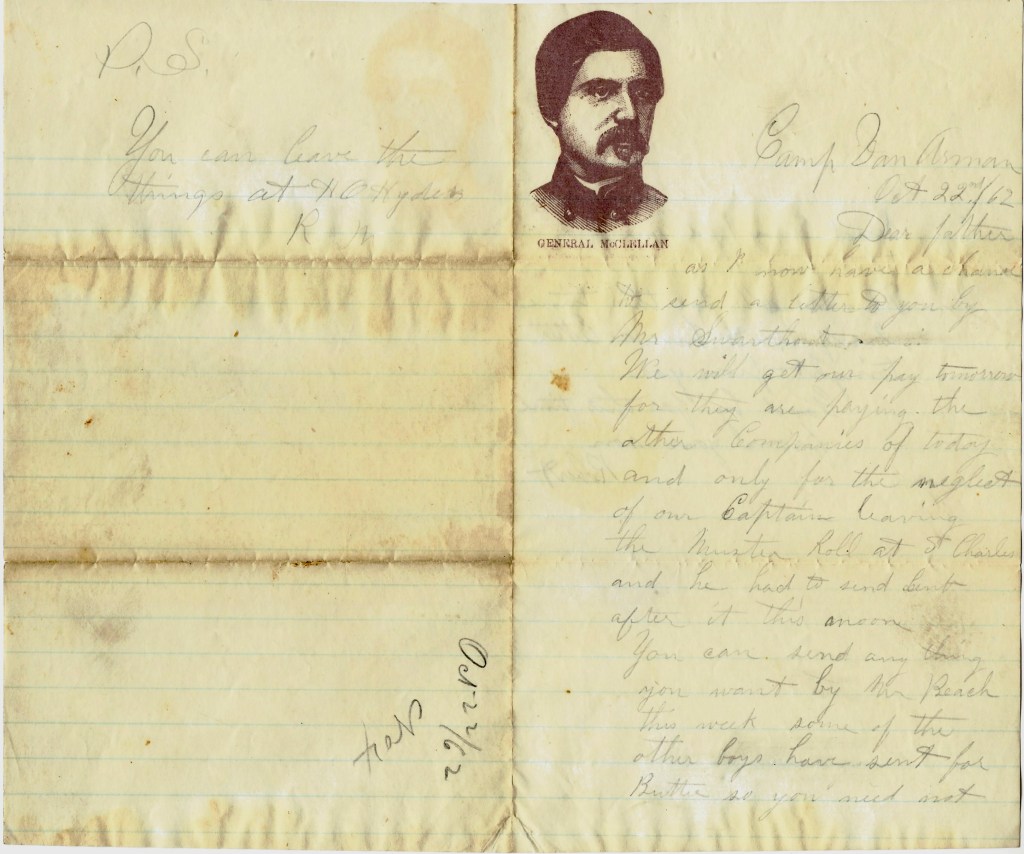 P.S.
You can leave the
things at H O Hyders
R W
Oct 22/62
No 4
GENERAL McCLELLAN
Camp Van Arman
Oct 22nd/62
Dear father
as I now have a chance
to send a letter to you by
Mr Swarthout
We will get our pay tomorrow
for they are paying the
other Companies of today
and only for the neglect
of our Captain leaving
the Muster Roll at St Charles
and he had to send
after it this noon
You can send any thing
you want by Mr Beach
this week some of the
other boys have sent for
Butter so you need not